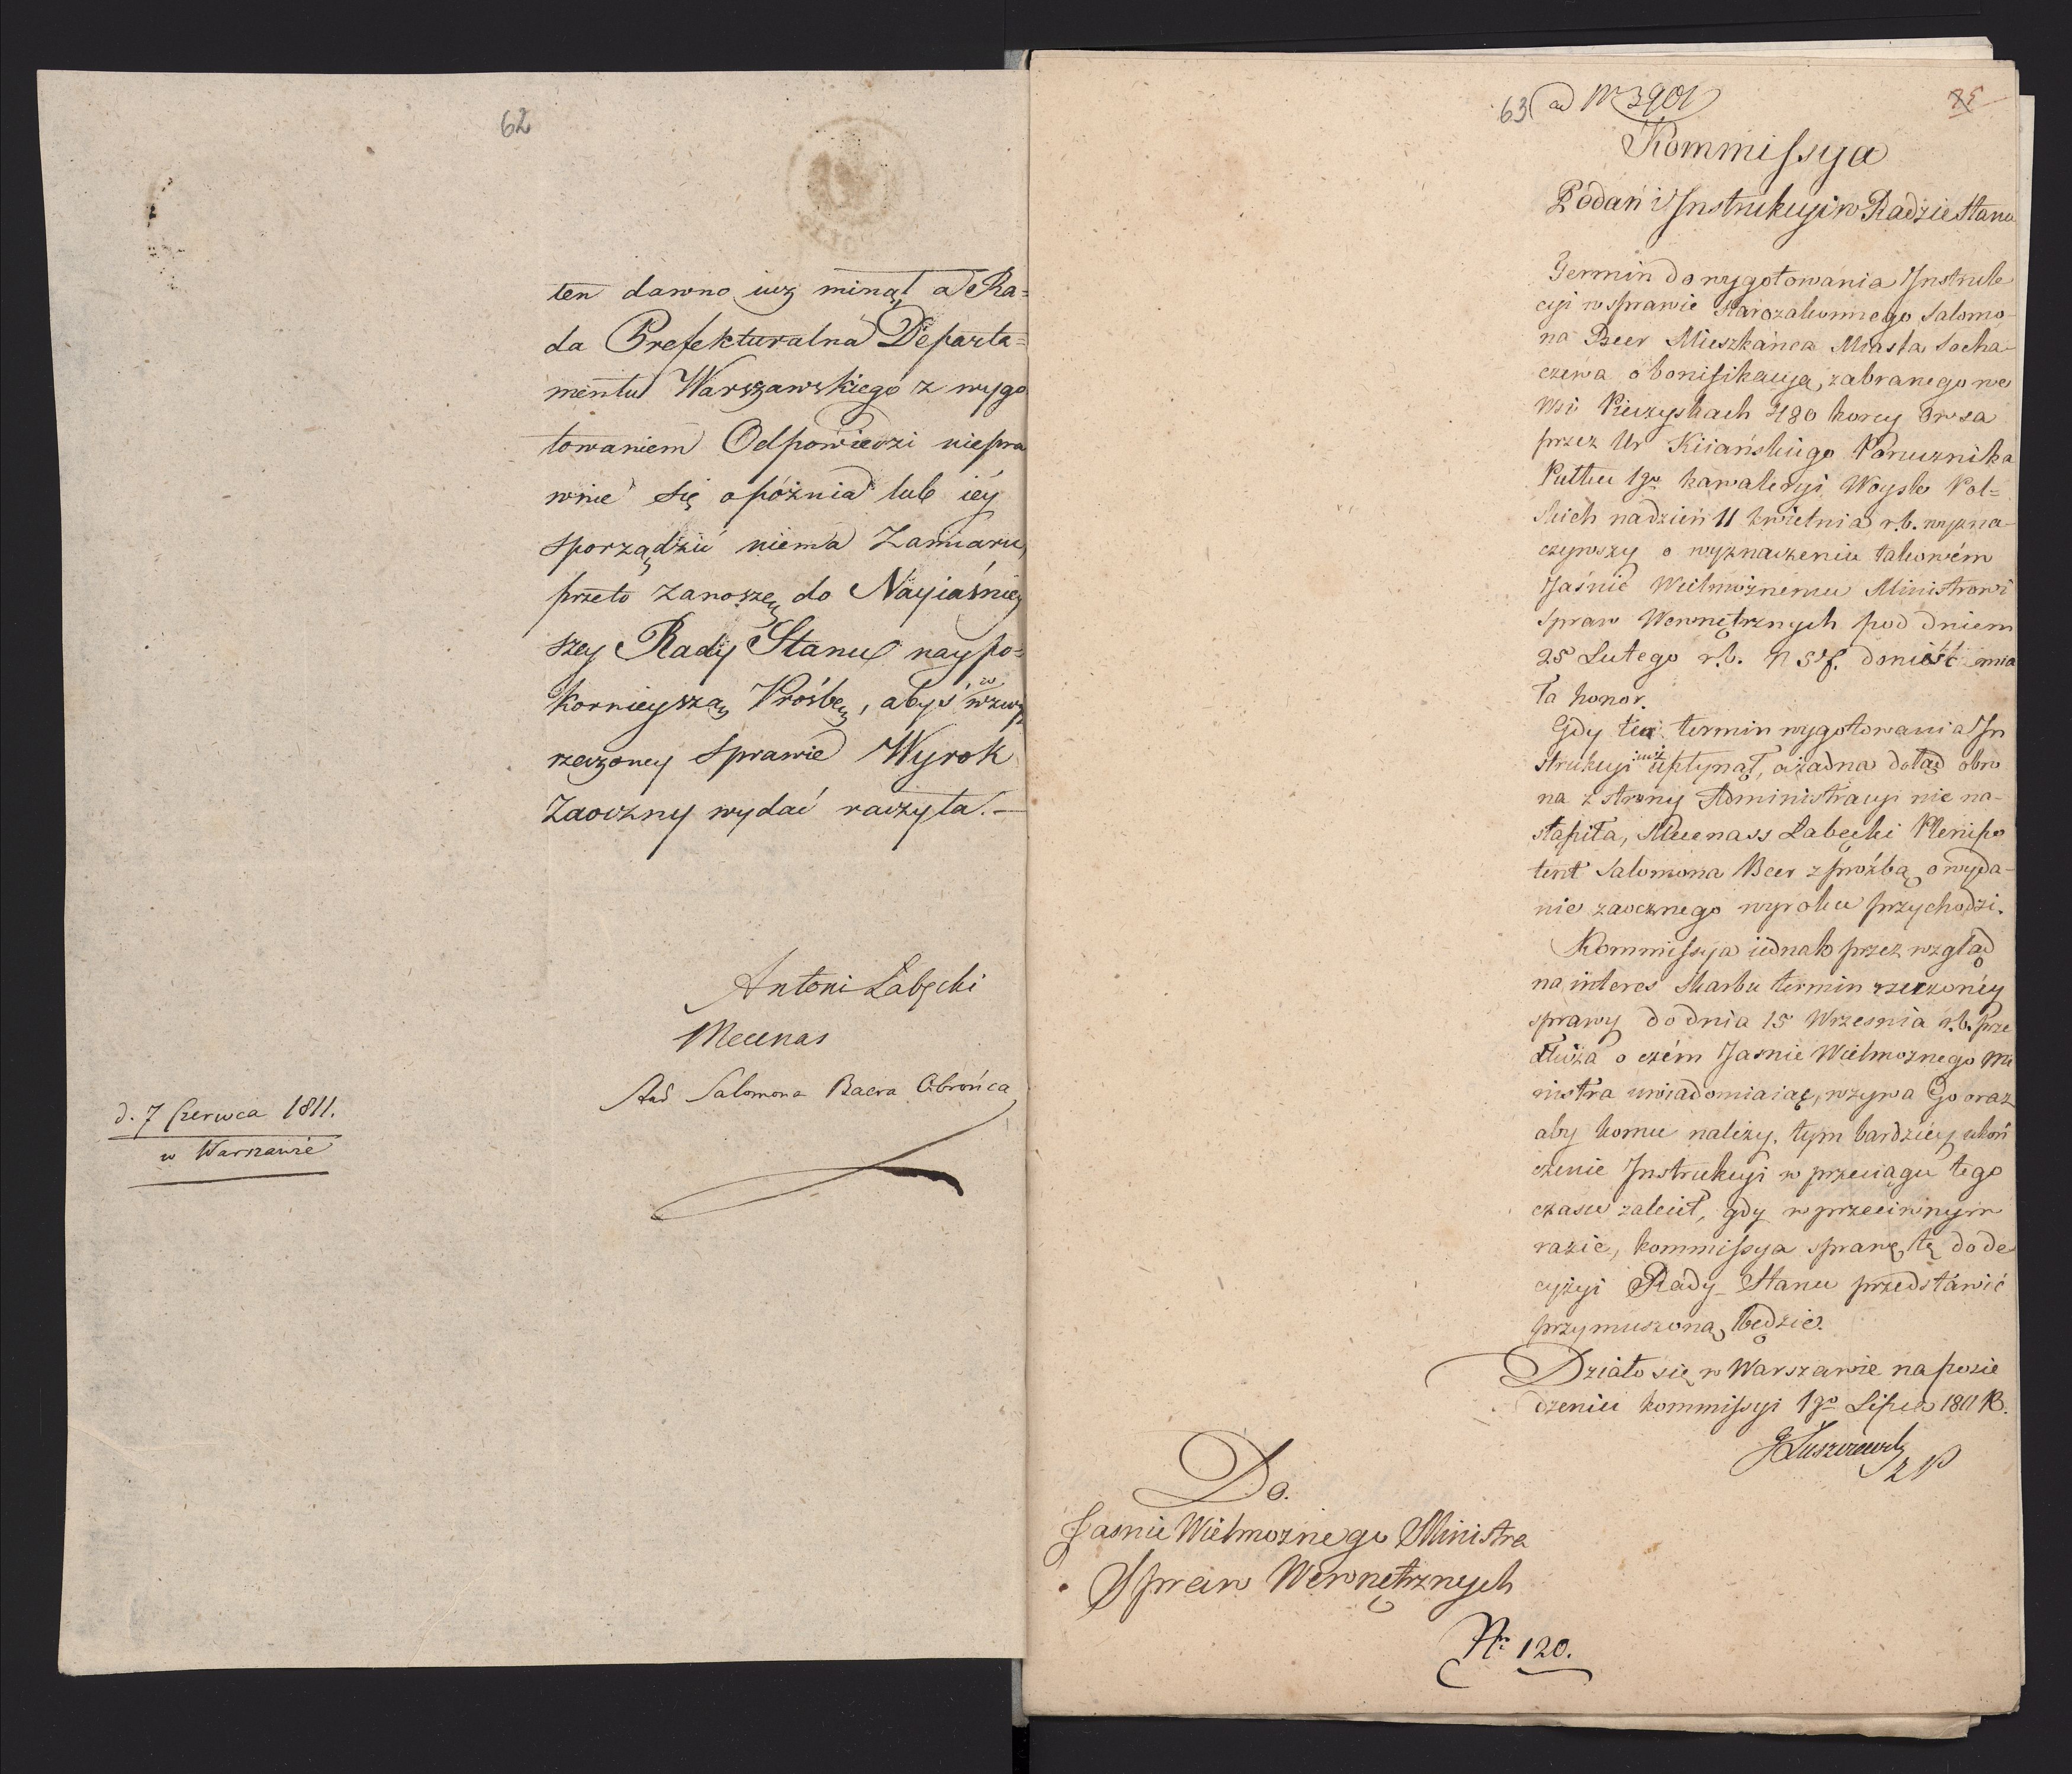 62
ten dawno iuż minął a Ra=
da Prefekturalna Departa=
mentu Warszawskiego z wygo
towaniem Odpowiedzi niepra
wnie się opóźnia lub iéy
sporządzić niema Zamiaru,
przeto zanoszę do Nayiaśniey
szey Rady Stanu naypo=
kornieyszą Prośbę, abyś w
rzeczoney Sprawie Wyrok
Zaoczny wydać raczyła.—
Antoni Łabęcki
Mecenas
Salomona Baera Obrońca
d. 7 Czerwca 1811.
w Warszawie
63 ad Nr 3901
Kommissya
Podań i Instrukcyi w Radzie Stanu
Termin do wygotowania Instruk
cyi w sprawie Starozakonnego Salomo-
na Beer Mieszkańca Miasta Socha-
czewa o bonifikacyą, zabranego we
Wsi Kieczyskach 480 korcy Owsa
przez Ur Kiiańskiego Porucznika
Pułku 1go kawaleryi Woysk Pol=
skich na dzień 11 kwietnia r.b. wyzna-
czywszy o wyznaczeniu takowém
Jaśnie Wielmożnemu Ministrowi
Spraw Wewnętrznych pod dniem
25 Lutego r.b. N 57. donieść mia
ła honor.
Gdy ten termin wygotowania In
strukcyi iuż upłynął, a żadna dotąd obro
na z strony Administracyi nie na-
stąpiła, Mecenass Łabęcki Plenipo
tent Salomona Beer z prozbą o wyda-
nie zaocznego wyroku przychodzi.
Kommissya iednak przez wzgląd
na interes Skarbu termin rzeczonéy
sprawy do dnia 15 Września r.b. prze
dłuża o czém Jasnie Wielmożnego Mi
nistra uwiadomiaiąc, wzywa Go oraz
aby komu należy, tym bardziéy ukoń
czenie Instrukcyi w przeciągu tego
czasu zalecił, gdy w przeciwnym
razie, kommissya sprawę tę do de
cyzyi Rady Stanu przedstawić
przymuszoną będzie.
Działo się w Warszawie na posie
dzeniu kommissyi 1go Lipca 1811 R.
Łuszczewski
Do.
Jasnie Wielmożnego Ministra
Spraw Wewnętrznych
Nr 120.